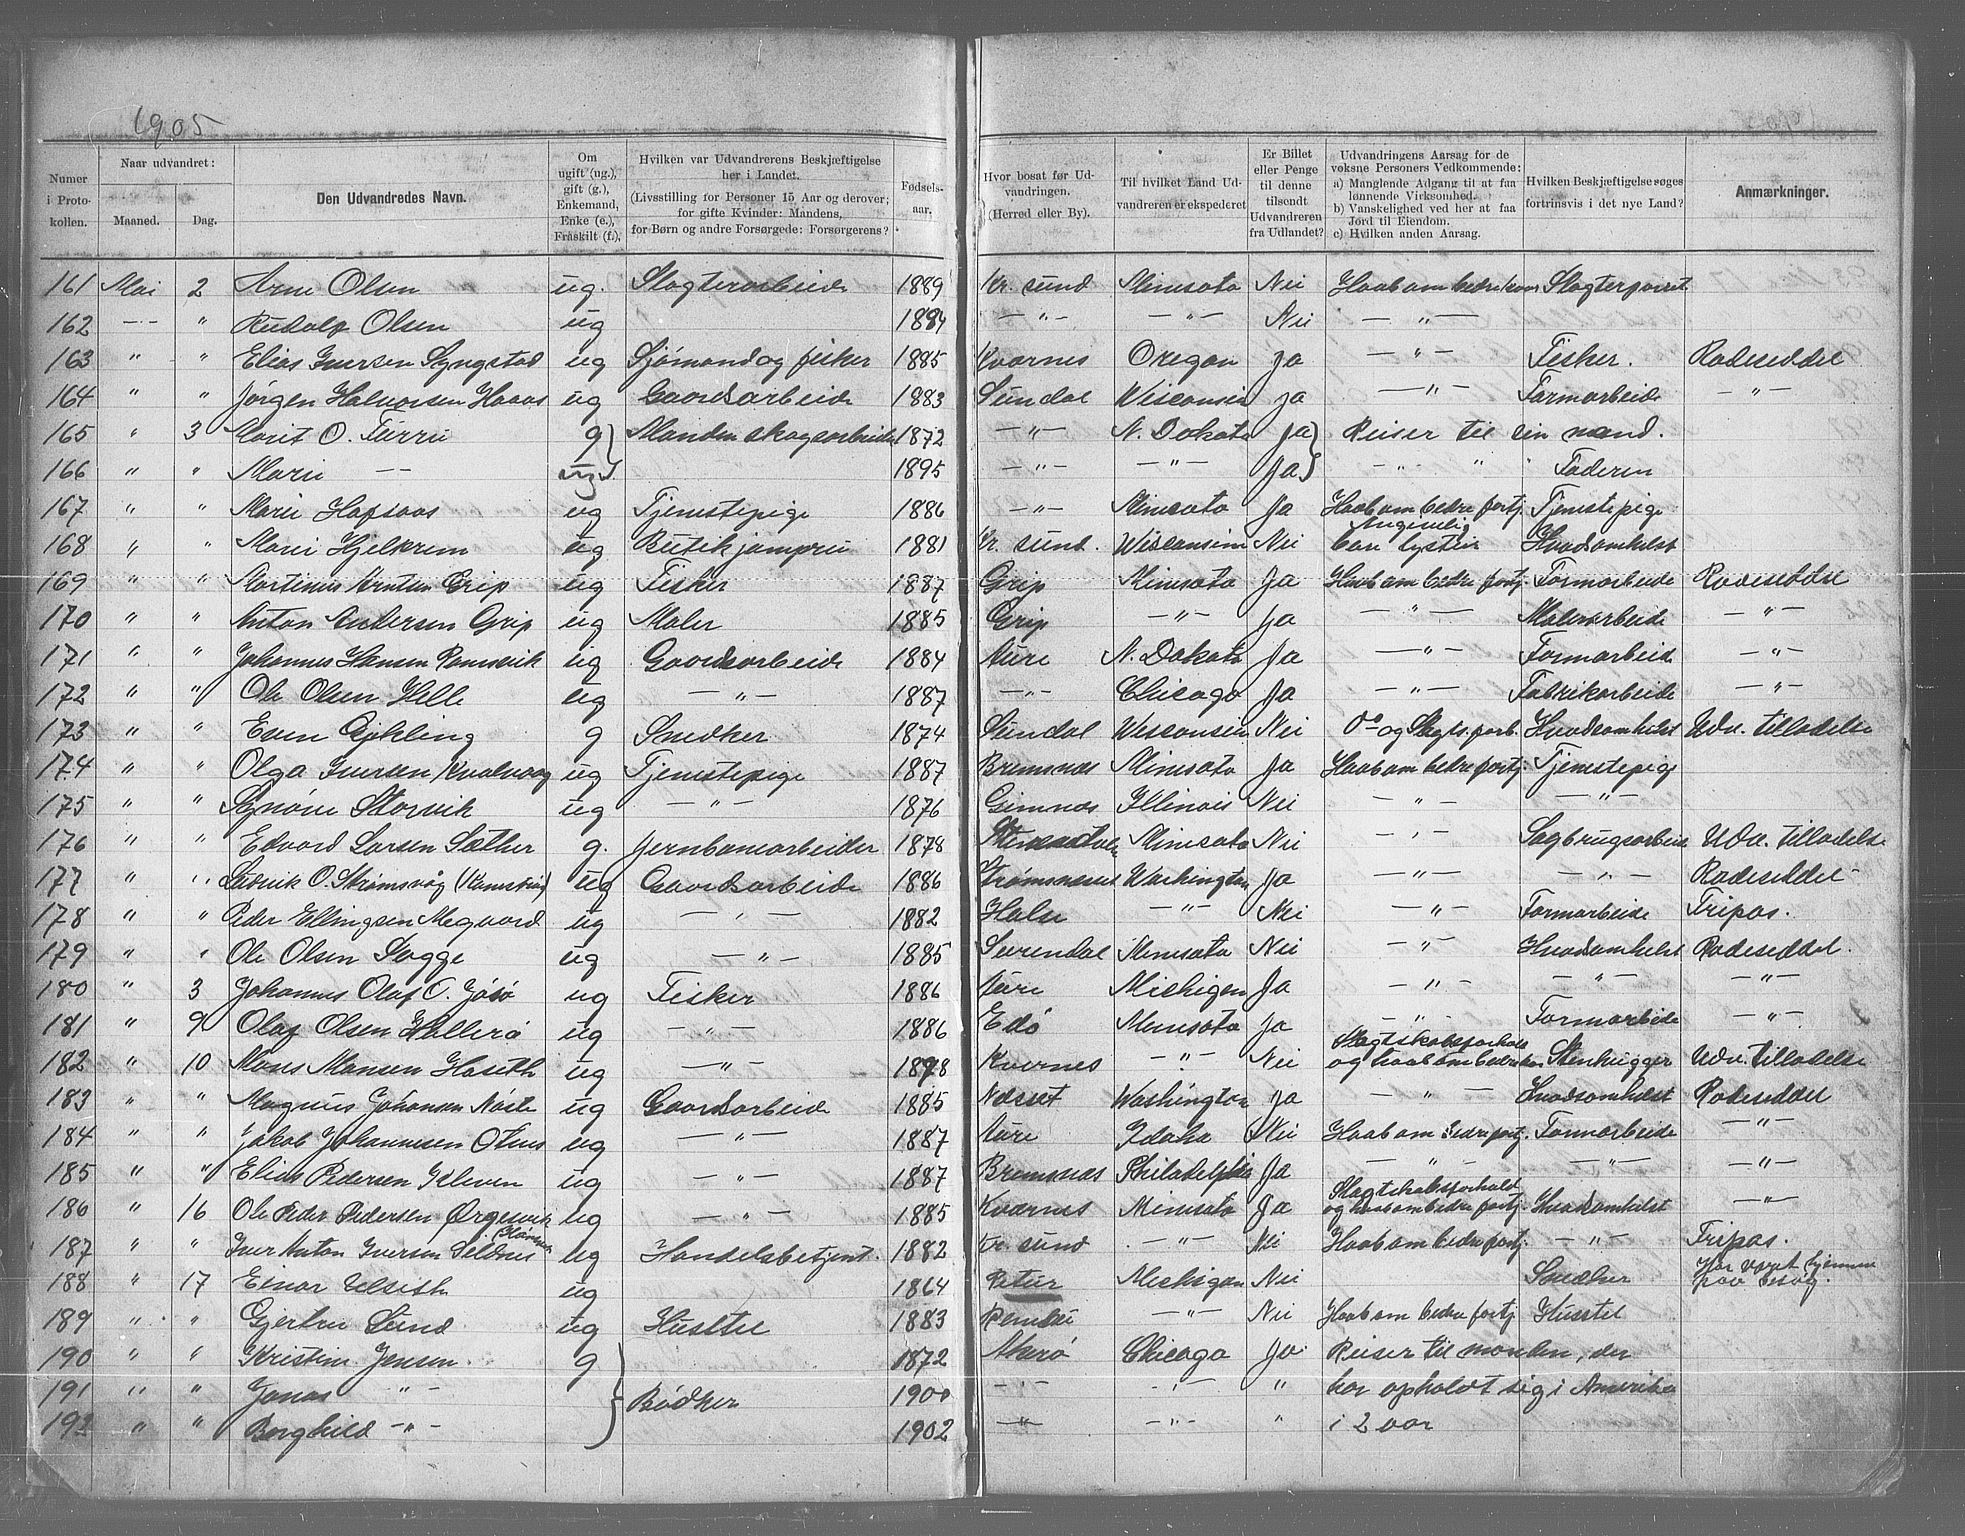 1905
Numer i Proto-kollen. | Naar udvandret: Maaned. | Dag. | Den Udvandredes Navn. | Om ugift (ug.), gift (g.), Enkemand, Enke (e.), Fraskilt (f.), | Hvilken var Udvandrerens Beskjæftigelse her i Landet. (Livsstilling for Personer 15 Aar og derover; for gifte Kvinder: Mandens, for Børn og andre Forsørgede: Forsørgerens? | Fødsels-aar. | Hvor bosat før Ud-vandringen. (Herred eller By). | Til hvilket Land Ud-vandreren er ekspederet | Er Billet eller Penge til denne tilsendt Udvandreren fra Udlandet? | Udvandringens Aarsag for de voksne Personers Vedkommende: a) Manglende Adgang til at faa lønnende Virksomhed. b) Vanskelighed ved her at faa Jord til Eiendom. c) Hvilken anden Aarsag. | Hvilken Beskjæftigelse søges fortrinsvis i det nye Land? | Anmærkninger.
161 Mai 2 Arne Olsen ug. Slagterarbeide 1889 Kr. sund Minisota Nei Haab om bedre
162 -"- " Rudolf Olsen ug 1884 -"- -"- Nei -"-
163 " " Elias Iversen Syngstad ug Sjømand og fisker 1885 Kværnes Oregon Ja -"- Fisker. Rodeseddel
164 " " Jørgen Halvorsen Haas ug Gaardsarbeide 1883 Sundal Wisconsin Ja -"- Farmarbeide -"-
165 " 3 Marit O. Furru g Manden skogsarbeider 1872 -"- N. Dakota Ja Reiser til sin mand.
166 " " Marie -- ug. 1895 -"- -"- Ja " " Faderen
167 " " Marie Hafsaas ug Tjenestepige 1886 -"- Minisota Ja Haab om bedre fortj. Tjenestepige
168 " " Marie Hjelkrem ug Butikjomfru 1881 Kr. sund. Wisconsin Nei lysten Hvadsomhelst
169 " " Martinus Knutsen Grip ug Fisker 1887 Grip Minisota Ja Haab om bedre fortj. Farmarbeide Rodeseddel
170 " " Anton Andersen Grip ug Maler 1885 Grip -"- Ja -"- Malerarbeide -"-
171 " " Johannes Hansen Romsvik ug Gaardsarbeide 1884 Aure N. Dakota Ja -"- Farmarbeide -"-
172 " " Ole Olsen Helle ug -"- 1887 -"- Chicago Ja -"- Fabrikarbeide -"-
173 " " Even Gjikling g Snedker 1874 Sundal Wisconsin Nei Hvadsomhelst Udv. tilladelse
174 " " Olga Iversen Kvalvaag ug Tjenestepige 1887 Bremsnæs Minisota Ja Haab om bedre fortj. Tjenestepige
175 " " Synøve Storvik ug -"- 1876 Gimnæs Illinois Nei -"- -"-
176 " " Edvard Larsen Sæther g. Jernbanearbeider 1878 Minisota Nei -"- Sagbrugsarbeide Udv. tilladelse
177 " " Ludvik O. Strømsvåg ug Gaardsarbeide 1886 Strømsnæs Washington Ja -"- -"- Rodeseddel
178 " " Peder Ellingsen Megaard ug -"- 1882 Halse -"- Nei -"- Farmarbeide Fripas.
179 " " Ole Olsen Sogge ug -"- 1885 Surendal Minisota Nei -"- Hvadsomhelst Rodeseddel.
180 " 3 Johannes Olaf O. Jøsø ug Fisker 1886 Aure Michigen Ja -"- -"- -"-
181 " 9 Olaf Olsen Hallerø ug -"- 1886 Edø Minisota Ja -"- Farmarbeide -"-
182 " 10 Mons Monsen Haseth ug -"- 1878 Kvernes -"- Nei Slagtskabsforhold og haab om bedre Stenhugger Udv. tilladelse
183 " " Magnus Johansen Nøste ug Gaardsarbeide 1885 Nesset Washington Ja -"- Hvadsomhelst Rodeseddel
184 " " Jakob Johannesen Otnes ug -"- 1887 Aure Idaho Nei Haab om bedre fortj. Farmarbeide -"-
185 " " Elias Pedersen Kleven ug -"- 1887 Bremsnæs Philadelphia Ja -"- -"- -"-
186 " 16 Ole Peder Pedersen Ørgesvik ug -"- 1885 Kværnes Minisota Ja Slagtskabsforhold og haab om bedre fortj. Hvadsomhelst -"-
187 " " Iver Anton Iversen ug Handelsbetjent. 1882 Kr. sund -"- Nei Haab om bedre fortj. -"- Fripas.
188 " 17 Einar Ulseth ug 1864 Retur Michigan Nei Snedker Har været hjemme paa besøg.
189 " " Gjertru Sund ug Hustel 1883 Michigan -"- Nei Haab om bedre fortj Hustel
190 " " Kristine Jensen. g 1872 Akerø Chicago Ja Reiser til manden, der
191 " " Jonas -"- Bødker 1900 -"- -"- " har opholdt sig i Amerika
192 " " Borghild -"- 1902 -"- -"- " i 2 aar